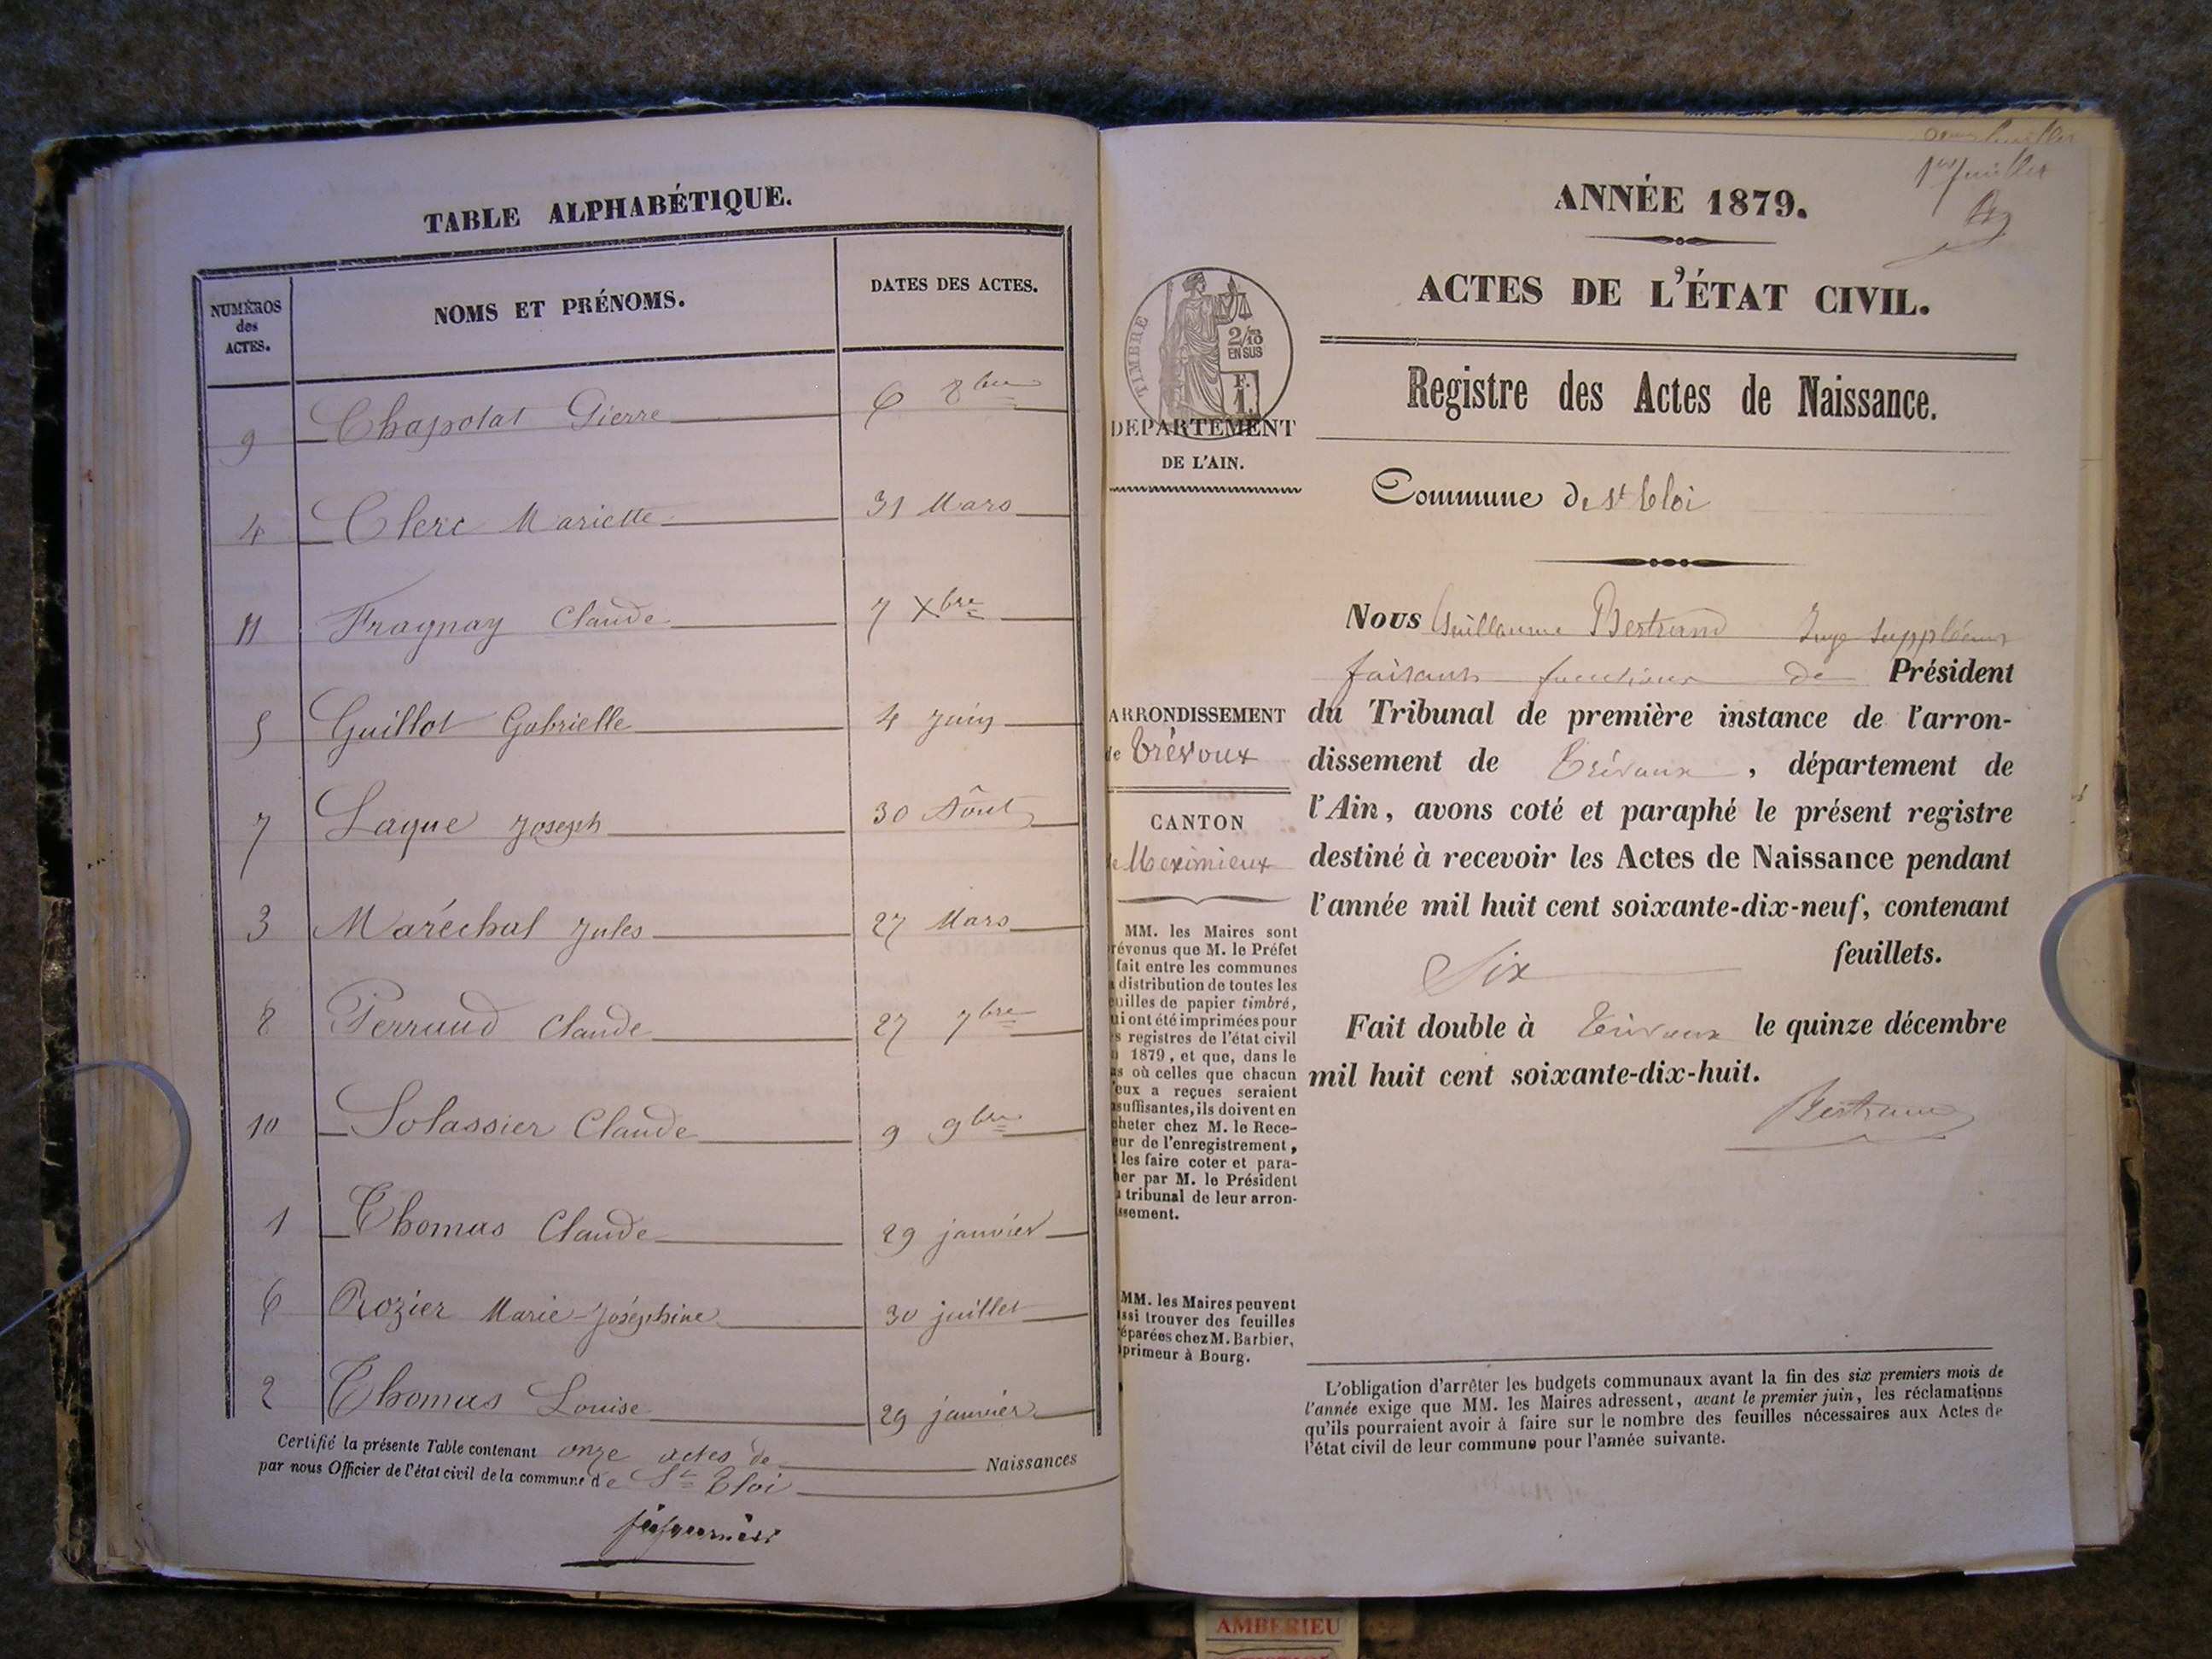 TABLE ALPHABÉTIQUE.
NUMÉROS des ACTES.
NOMS ET PRÉNOMS.
DATES DES ACTES.
9 Chapolat Pierre 6 8bre
4 Clerc Mariette 31 Mars
11 Fragnay Claude 7 Xbre
5 Guillot Gabrielle 4 Juin
7 Laque Joseph 30 Août
3 Maréchal Jules 27 Mars
8 Perraud Claude 27 7bre
10 Solassier Claude 9 9bre
1 Thomas Claude 29 janvier
6 Rozier Marie-Joséphine 30 juillet
2 Thomas Louise 29 janvier
Certifié la présente Table contenant onze actes de Naissances
par nous Officier de l'état civil de la commune de St Eloi
1er feuillet
ANNÉE 1879.
ACTES DE L'ÉTAT CIVIL.
Registre des Actes de Naissance.
TIMBRE
2/10
EN SUS
F.
1.
DEPARTEMENT
DE L'AIN.
Commune de St Eloi
Nous Guillaume Bertrand Juge Suppléant
faisant fonctions de Président
du Tribunal de première instance de l'arron-
dissement de Trévoux, département de
l'Ain, avons coté et paraphé le présent registre
destiné à recevoir les Actes de Naissance pendant
l'année mil huit cent soixante-dix-neuf, contenant
Six feuillets.
Fait double à Trévoux le quinze décembre
mil huit cent soixante-dix-huit.
Bertrand
ARRONDISSEMENT
de Trévoux
CANTON
de Meximieux
MM. les Maires sont
révenus que M. le Préfet
fait entre les communes
distribution de toutes les
uilles de papier timbré,
ui ont été imprimées pour
s registres de l'état civil
1879, et que, dans le
as où celles que chacun
'eux a reçues seraient
suffisantes, ils doivent en
cheter chez M. le Rece-
eur de l'enregistrement,
les faire coter et para-
her par M. le Président
tribunal de leur arron-
ssement.
MM. les Maires peuvent
ssi trouver des feuilles
éparées chez M. Barbier,
primeur à Bourg.
L'obligation d'arrêter les budgets communaux avant la fin des six premiers mois de
l'année exige que MM. les Maires adressent, avant le premier juin, les réclamations
qu'ils pourraient avoir à faire sur le nombre des feuilles nécessaires aux Actes de
l'état civil de leur commune pour l'année suivante.
AMBERIEU